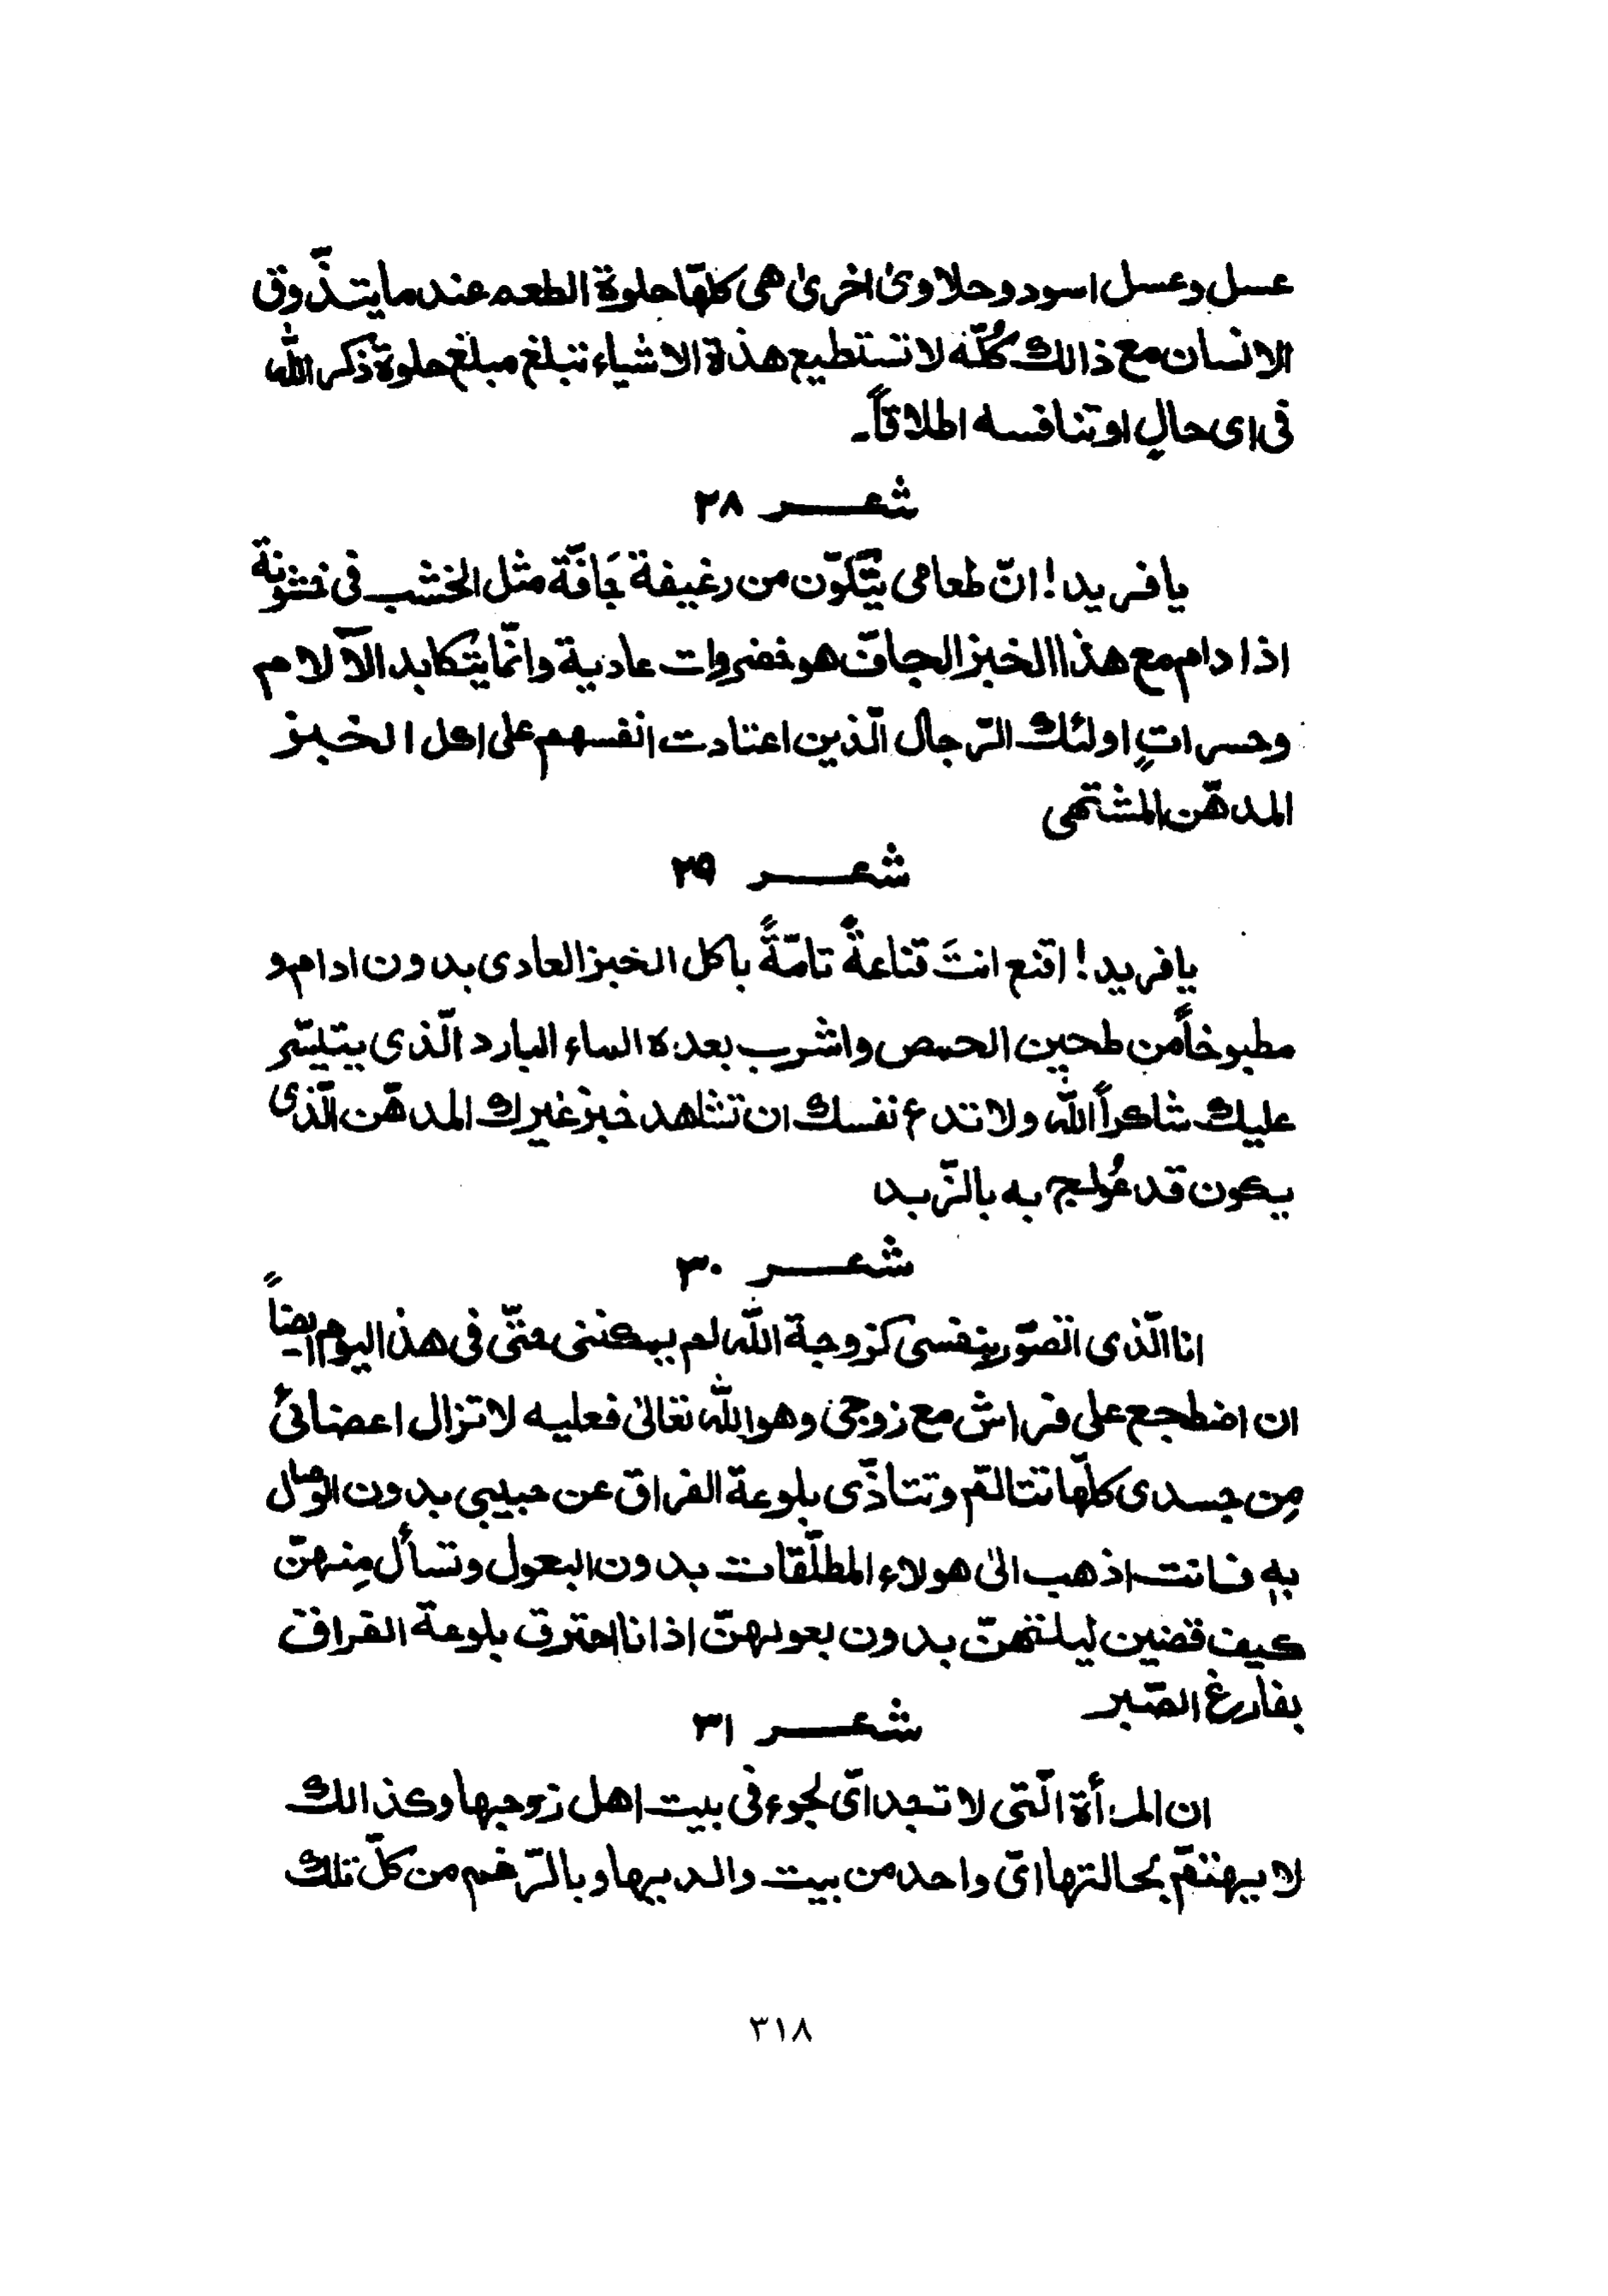 عسل وعسل اسود وحلاوىٰ اخرىٰ هى كلّها حلوة الطعم عند ما يتذّوق
الانسان مع ذالك كُلّه لا تستطيع هذة الاشياء تبلغ مبلغ حلوة ذكر اللّٰه
فى اى حالٍ او تنافسه اطلاقاً۔
شعر ٢٨
يا فريد! انّ طعامى يتّكوّن من رغيفة جَافّة مثل الخشب فى خشونة
اذا دام مع هذا الخبز الجافّ هو خضروات عادية وانّما يتكابد الآلام
وحسراتٍ اولئك الرّجال الّذين اعتادت انفسهم على اكل الخبز
المدهّن المشتهى
شعر ٢٩
يا فريد! اقنع انتَ قناعةً تامّةً باكل الخبز العادى بدون ادام و
مطبوخاً من طحين الحمص واشرب بعده الماء البارد الّذى يتيسّر
عليك شاكراً اللّٰه ولا تدع نفسك ان تشاهد خبز غيرك المدهّن الّذى
يكون قد عُولج به بالزّبد
شعر ٣٠
انا الّذى اتصوّر بنفسى كزوجة اللّٰه لم يمكننى حتّى فى هذا اليوم ايضاً
ان اضطجع على فراش مع زوجى وهو اللّٰه تعالىٰ فعليه لا تزال اعضائى
مِن جسدى كلّها تتالّم وتتاذّى بلوعة الفراق عن حبيبى بدون الوصال
بهٖ فانت اذهب الىٰ هولاء المطلّقات بدون البعول وتسأل مِنهنّ
كيف قضين ليلتهنّ بدون بعولهنّ اذ انا احترق بلوعة الفراق
بفارغ الصّبر
شعر ٣١
ان المرأة الّتى لا تجد اىّ لجوء فى بيت اهل زوجها وكذالك
لا يهتمّ بحالتها اىّ واحد من بيت والديها وبالرّغم من كلّ تلك
٣١٨